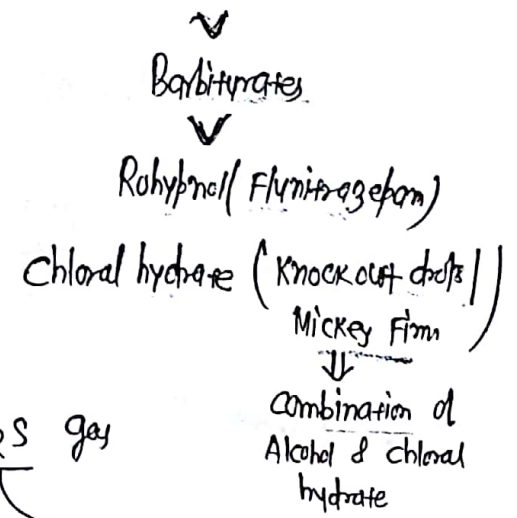 Barbiturates
Rohypnol (Flunitrazepam)
Chloral hydrate (Knock out drops /
Mickey Finn)
combination of
Alcohol & chloral
hydrate
S gas